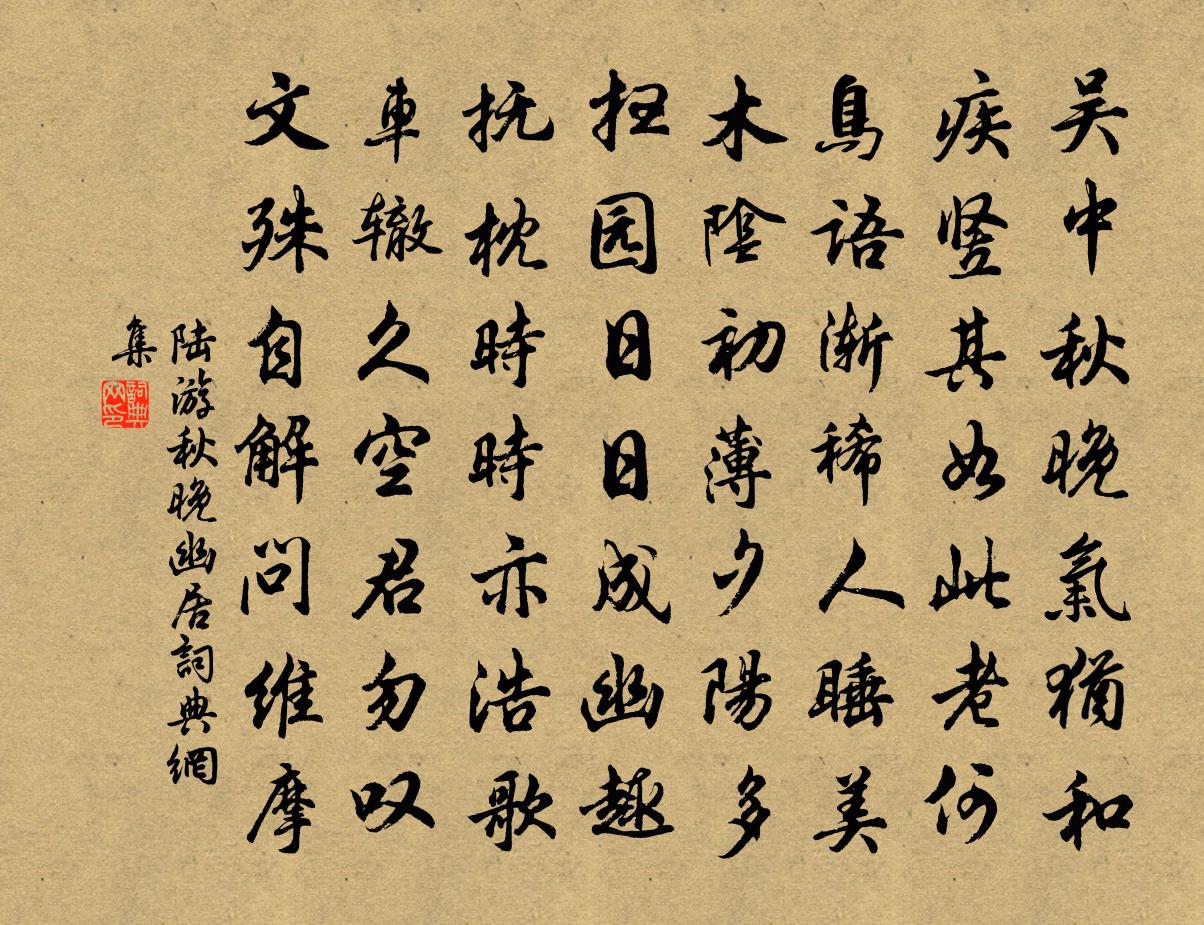 吴中秋晚氣猶和
疾竖其如此老何
鳥語漸稀人睡美
木陰初薄夕陽多
抂园日日成幽趣
抚枕時時亦浩歌
車辙久空君勿叹
文殊自解問維摩
陆游秋晚幽居詞典網
集
詞典网印